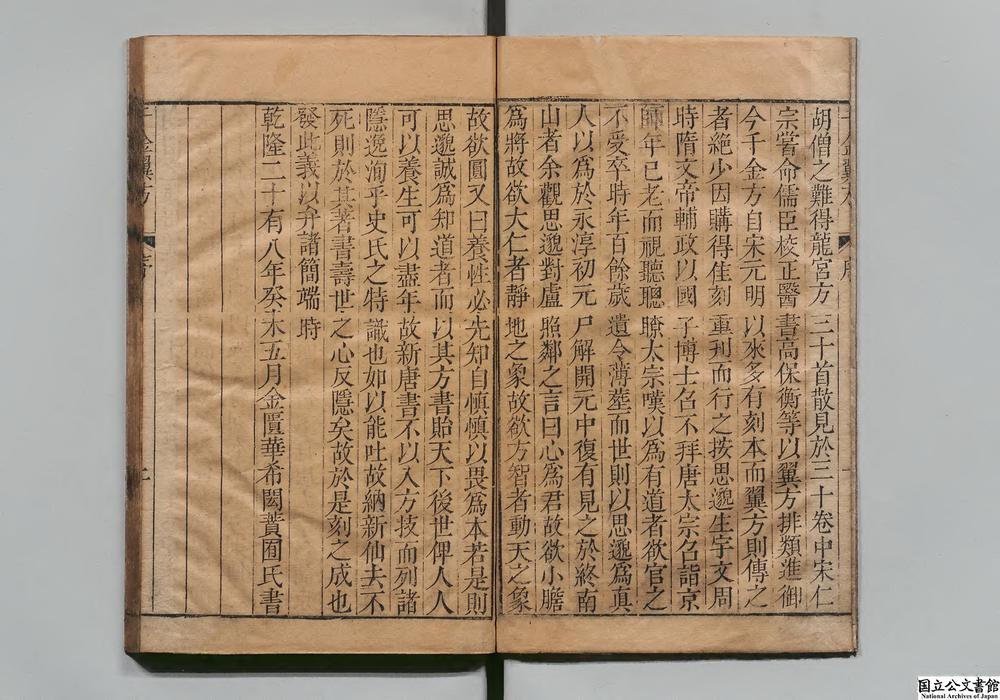 千金翼方 序 一
胡僧之難得龍宮方三十首散見於三十卷中宋仁
宗嘗命儒臣校正醫書高保衡等以翼方排類進御
今千金方自宋元明以來多有刻本而翼方則傳之
者絶少因購得佳刻重刊而行之按思邈生宇文周
時隋文帝輔政以國子博士召不拜唐太宗召詣京
師年已老而視聽聰瞭太宗嘆以爲有道者欲官之
不受卒時年百餘歲遺令薄葬而世則以思邈爲真
人以爲於永淳初元尸解開元中復有見之於終南
山者余觀思邈對盧照鄰之言曰心爲君故欲小膽
爲將故欲大仁者靜地之象故欲方智者動天之象
故欲圓又曰養性必先知自慎慎以畏爲本若是則
思邈誠爲知道者而以其方書貽天下後世俾人人
可以養生可以盡年故新唐書不以入方技而列諸
隱逸洵乎史氏之特識也如以能吐故納新仙去不
死則於其著書壽世之心反隱矣故於是刻之成也
發此義以弁諸簡端時
乾隆二十有八年癸未五月金匱華希閎蕡囿氏書
千金翼方 序 二
国立公文書館
National Archives of Japan